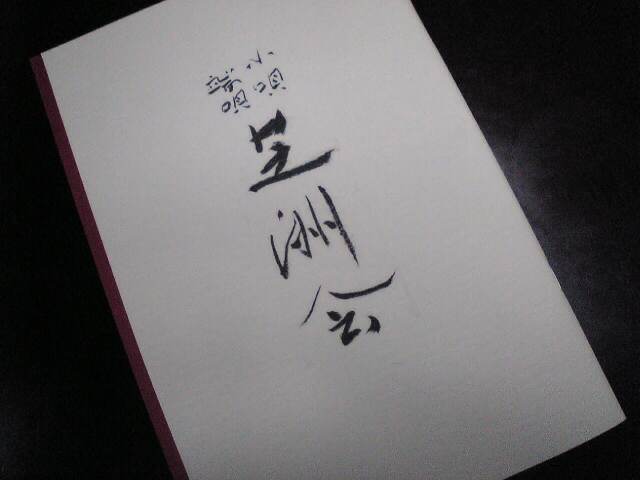 小唄
端唄
芝洲会